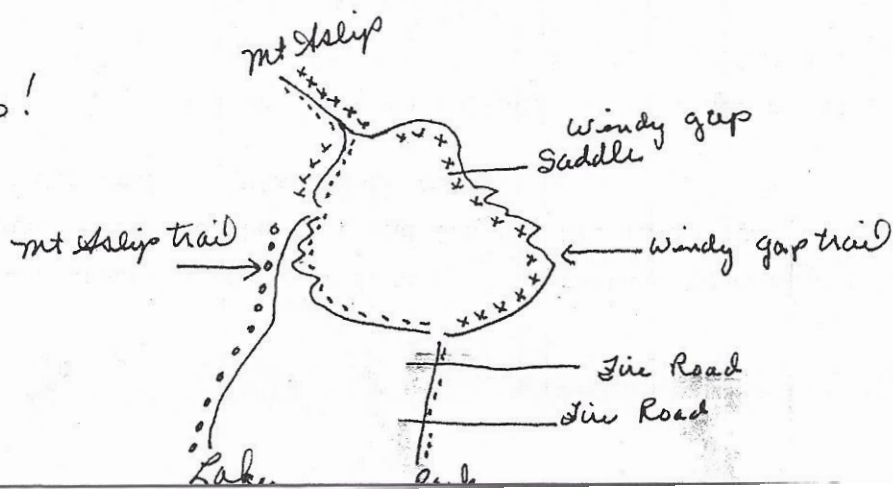 Mt Aslip
!
Windy gap
Saddle
Mt Aslip trail
Windy gap trail
Fire Road
Fire Road
Lake